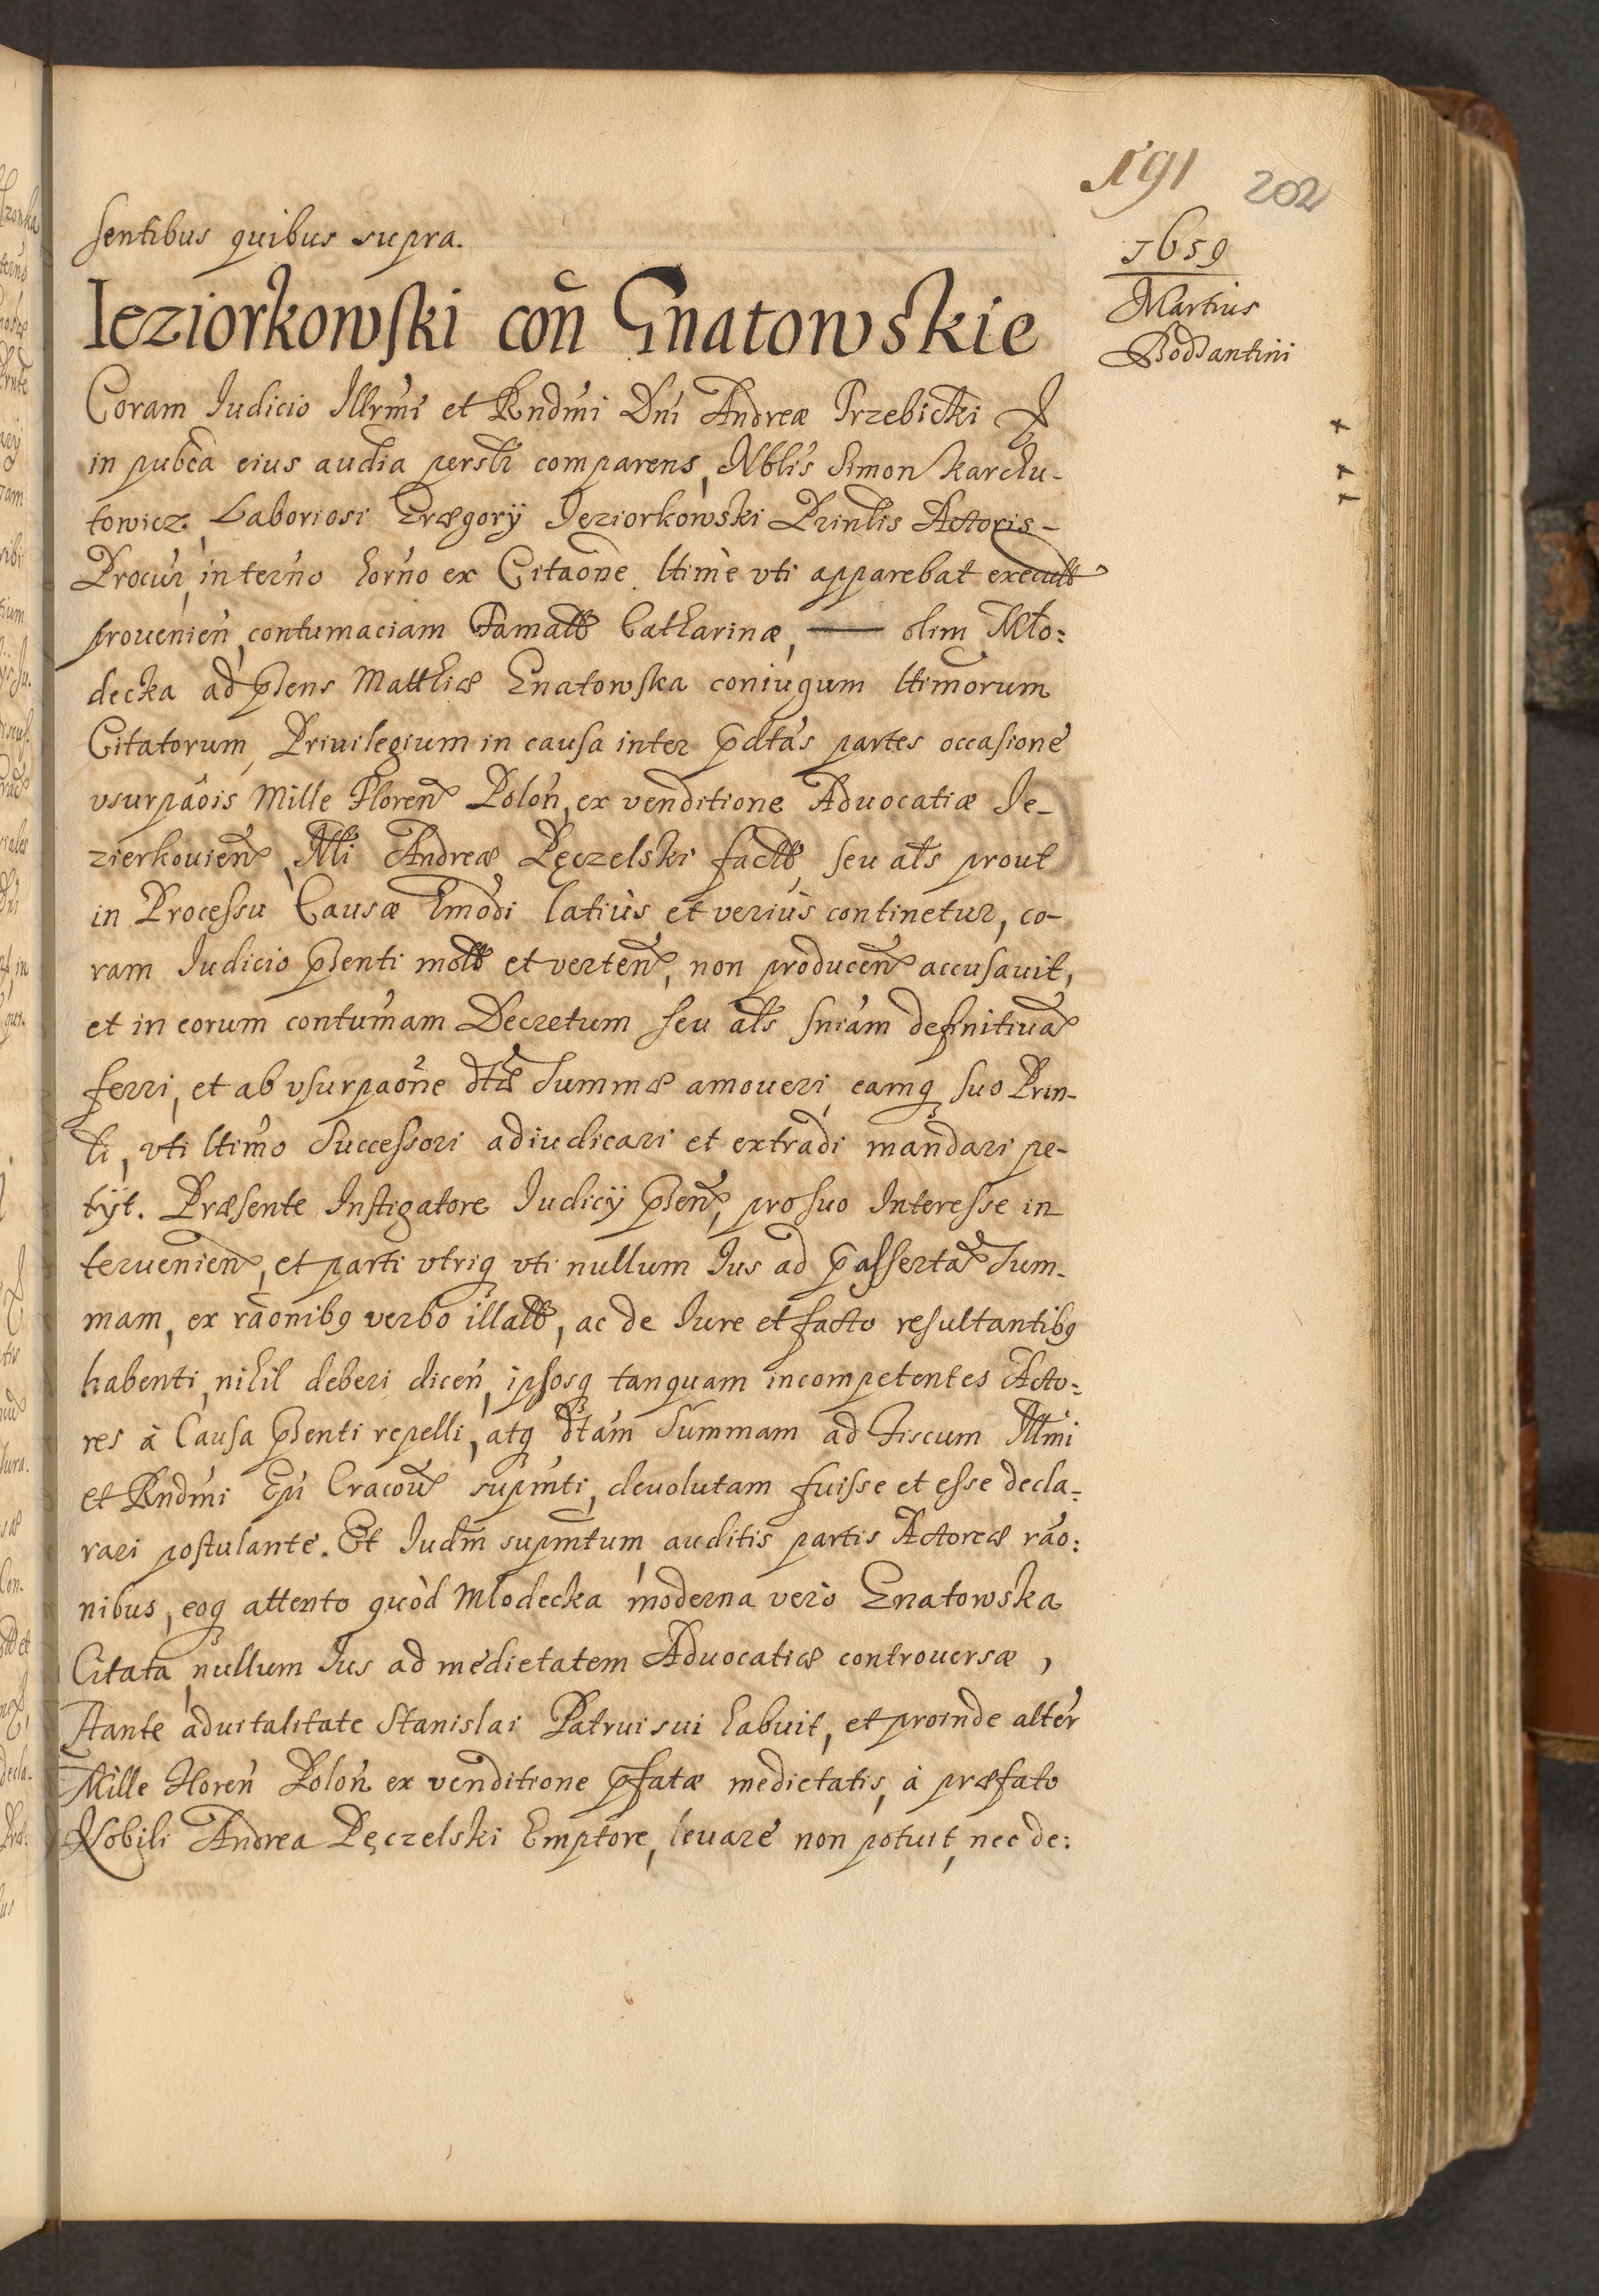 191 202
1659
Martius
Bodzantini
sentibus quibus supra.
Ieziorkowski con̄ Gnatowskie
Coram Iudicio Illrmi et Rndmi Dni Andreæ Trzebicki
in pubca eius audia persلr comparens, Nblis Simon Karchu-
towicz, Laboriosi Grægorÿ Jeziorkowski Prinlis Actoris
Procur, in terno horno ex Citaōne ltime vti apparebat
prouenien, contumaciam Famatt Catharinæ, olim Mło:
decka ad p̄sens Matthiæ Gnatowska coniugum ltimorum
Citatorum, Priuilegium in causa inter p̄dtas partes occasione
vsurpaōis Mille Floren Polon, ex venditione Aduocatiæ Je-
zierkouien, Nli Andreæ Pęczelski factt, seu als prout
in Processu Causæ hmodi latius et verius continetur, co-
ram Iudicio p̄senti mott et verten, non producen accusauit,
et in eorum contumam Decretum seu als sniam definitiua
ferri, et ab vsurpaōne dtæ Summæ amoueri, eamq suo Prin-
li, vti ltimo Successori adiudicari et extradi mandari pe-
tÿt. Præsente Instigatore Iudicÿ p̄sen, pro suo Interesse in
teruenien, et parti vtriq vti nullum Ius ad p̄assertā Sum-
mam, ex rāonibꝯ verbo illatt, ac de Iure et facto resultantibꝯ
habenti, nihil deberi dicen, ipsosq tanquam incompetentes Acto:
res à Causa p̄senti repelli, atq dtam Summam ad Fiscum Illmi
et Rndmi Epi Cracou supmti, deuolutam fuisse et esse decla:
rari postulante. Et Iudm supmtum, auditis partis Actoreæ rāo:
nibus, eoq attento quòd Mlodecka moderna verò Gnatowska
Citata, nullum Ius ad medietatem Aduocatiæ controuersæ,
stante aduitalitate Stanislai Patrui sui habuit, et proinde alter
Mille Floren Polon ex venditione p̄fatæ medietatis, à præfato
Nobili Andrea Pęczelski Emptore, leuare non potuit, nec de: